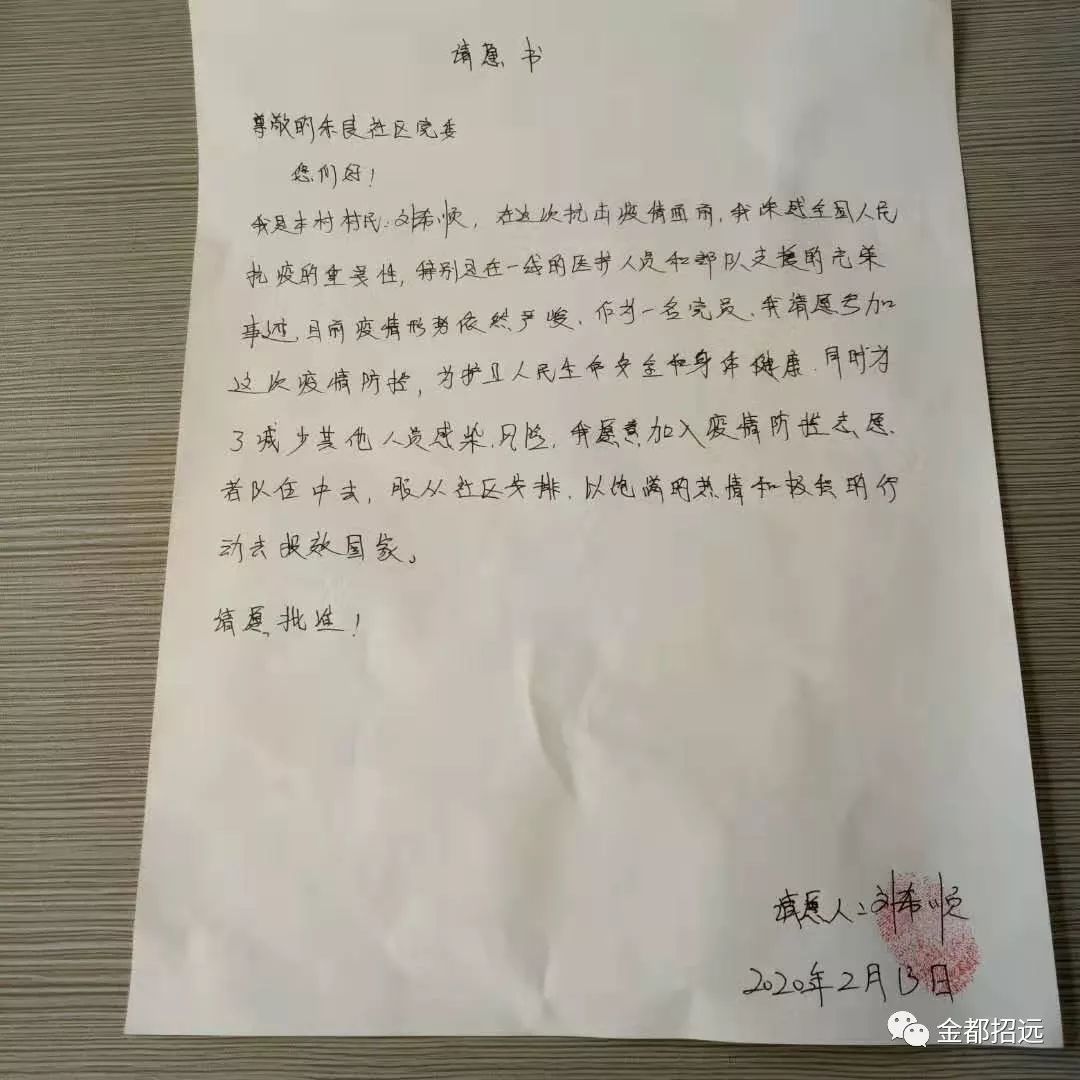 请愿书
尊敬的朱良社区党委
您们好！
我是本村村民：刘希顺，在这次抗击疫情面前，我深感全国人民
抗疫的重要性，特别是在一线的医护人员和部队支援的光荣
事迹，目前疫情形势依然严峻，作为一名党员，我请愿参加
这次疫情防控，为护卫人民生命安全和身体健康，同时为
了减少其他人员感染风险，我愿意加入疫情防控志愿
者队伍中去，服从社区安排，以饱满的热情和积极的行
动去报效国家。
请愿批准！
请愿人：刘希顺
2020年2月13日
金都招远